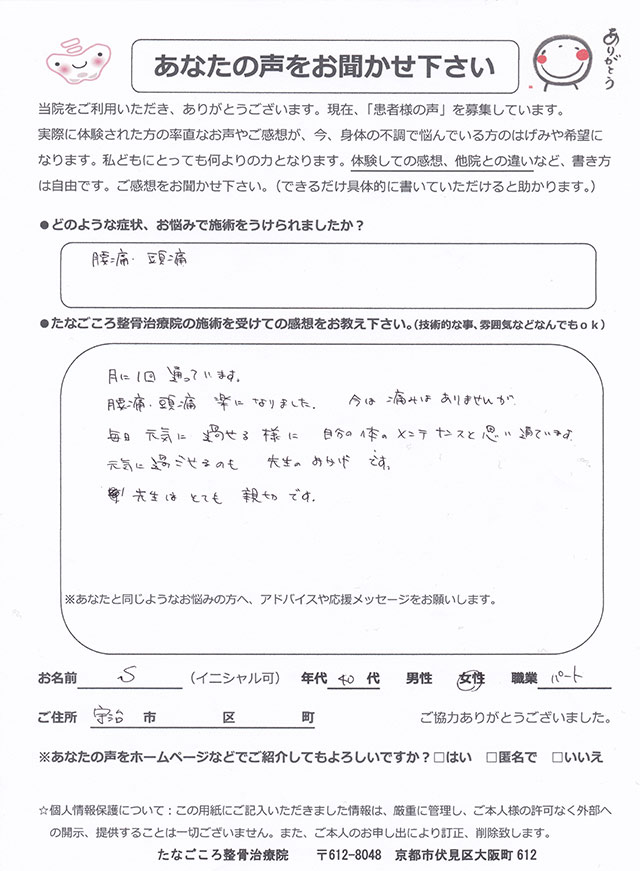 ありがとう
あなたの声をお聞かせ下さい
当院をご利用いただき、ありがとうございます。現在、「患者様の声」を募集しています。
実際に体験された方の率直なお声やご感想が、今、身体の不調で悩んでいる方のはげみや希望に
なります。私どもにとっても何よりの力となります。体験しての感想、他院との違いなど、書き方
は自由です。ご感想をお聞かせ下さい。（できるだけ具体的に書いていただけると助かります。）
●どのような症状、お悩みで施術をうけられましたか？
腰痛・頭痛
●たなごころ整骨治療院の施術を受けての感想をお教え下さい。（技術的な事、雰囲気などなんでもｏｋ）
月に1回 通っています。
腰痛・頭痛 楽になりました。 今は 痛みは ありませんが
毎日 元気に 過せる 様に 自分の体の メンテナンスと 思い 通ています
元気に過ごせるのも 先生の おかげ です。
先生は とても 親切 です。
※あなたと同じようなお悩みの方へ、アドバイスや応援メッセージをお願いします。
お名前 S （イニシャル可） 年代 40 代 男性 女性 職業 パート
ご住所 宇治 市 区 町 ご協力ありがとうございました。
※あなたの声をホームページなどでご紹介してもよろしいですか？□はい □匿名で □いいえ
☆個人情報保護について：この用紙にご記入いただきました情報は、厳重に管理し、ご本人様の許可なく外部へ
の開示、提供することは一切ございません。また、ご本人のお申し出により訂正、削除致します。
たなごころ整骨治療院 〒612-8048 京都市伏見区大阪町 612